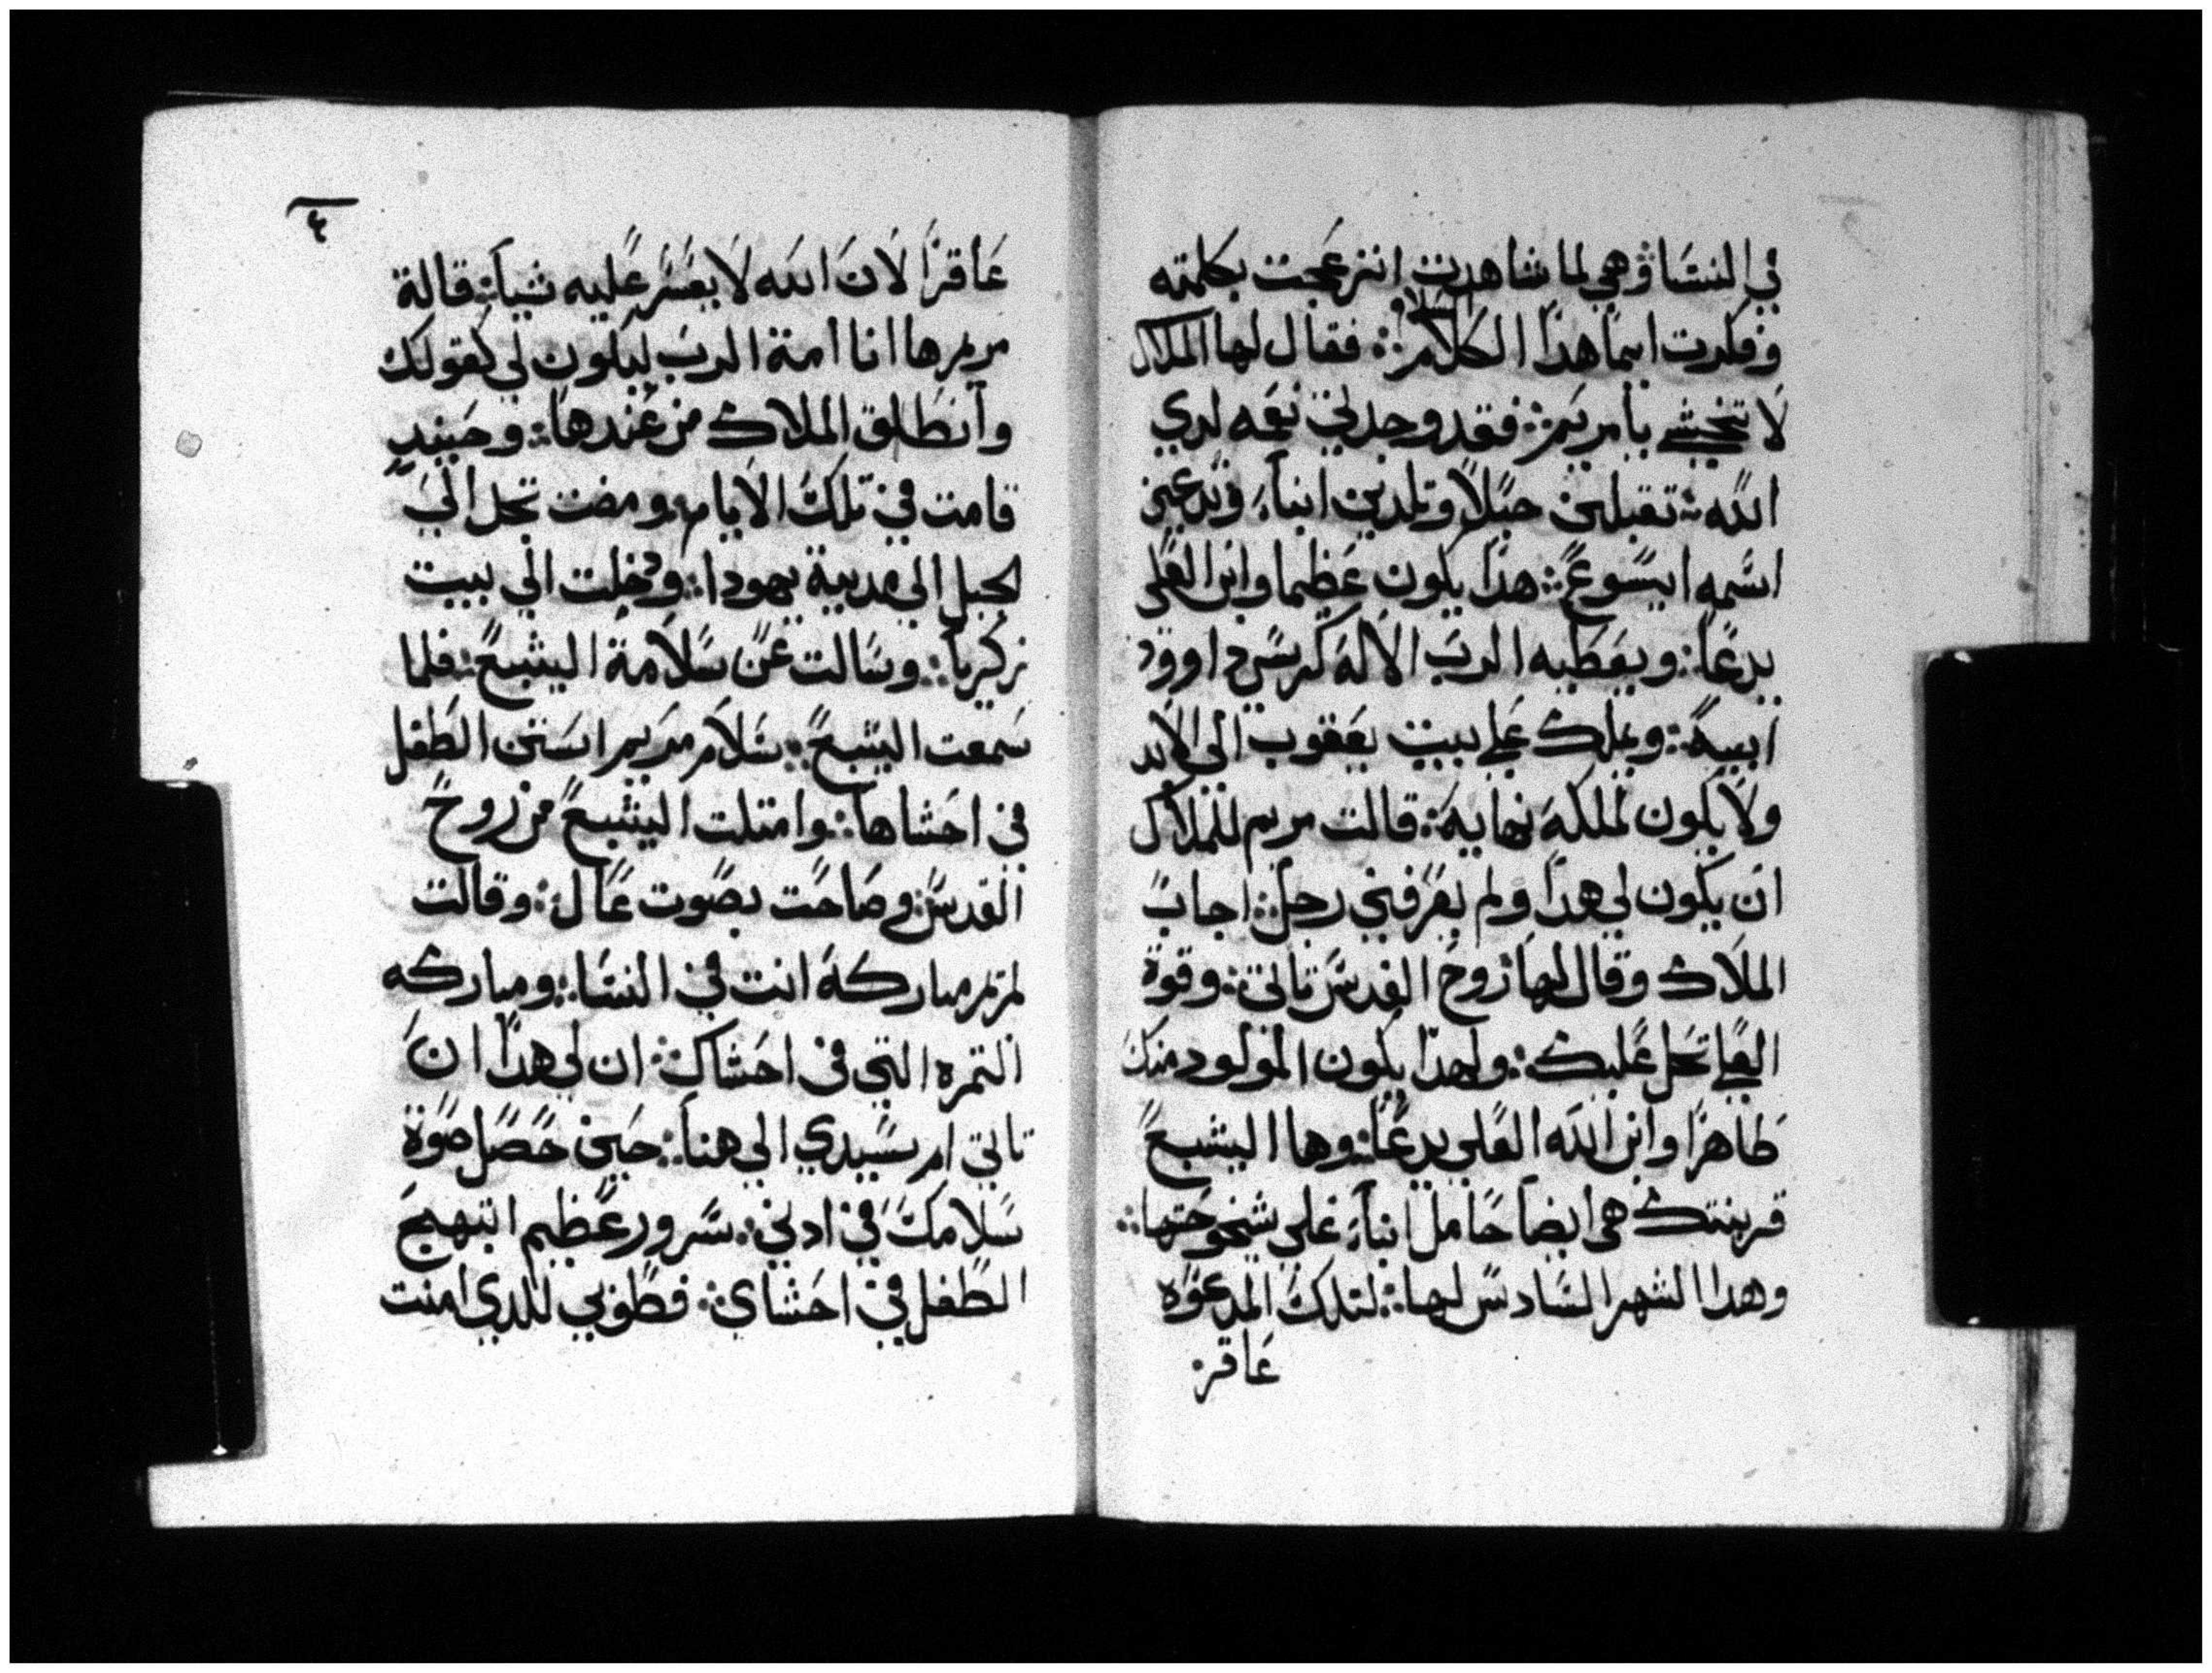 في النسَا وهي لما شاهدت انزعجت بكلمته
السلام
وفكرت ايما هدا الكلام ⁘ فقال لها الملاك
لا تخشي يا مريم ⁘ فقد وجدتي نعمه لدي
الله ⁘ تقبلين حبلاً وتلدين ابناً وتدعين
اسمه ايسوع ⁘ هدا يكون عظيما وابن العلي
يدعا ⁘ ويعطيه الرب الاله كرسي داوود
ابيه ⁘ ويملك علي بيت يعقوب الي الابد
ولا يكون لملكه نهاية ⁘ قالت مريم للملاك
ان يكون لي هدا ولم يعرفني رجل ⁘ اجاب
الملاك وقال لها روح القدس تاتي ⁘ وقوة
العلي تحل عليك ⁘ ولهدا يكون المولود منك
طاهرا وابن الله العلي يدعا ⁘ وها اليشبع
قرينتك هي ايضا حامل ابنا علي شيخوختها ⁘
وهدا الشهر السادس لها ⁘ لتلك المدعوه
عاقر
٤
عاقرا لان الله لا يعسر عليه شيا ⁘ قالة
مريم ها انا امة الرب ليكون لي كقولك
وانطلق الملاك من عندها ⁘ وحينيد
قامت في تلك الايام ومضت تجل الي
لجبل الي مدينة يهودا ⁘ ودخلت الي بيت
زكريا ⁘ وسالت عن سلامة اليشبع ⁘ فلما
سمعت اليشبع ⁘ سلام مريم استن الطفل
في احشاها ⁘ وامتلت اليشبع من روح
القدس ⁘ وصاحت بصوت عال ⁘ وقالت
لمريم مباركة انت في النسا ⁘ ومباركه
التمره التي في احشاك ⁘ ان لي هدا ان
تاتي ام سيدي الي هنا ⁘ حين حصل صوة
سلامك في ادني ⁘ سرور عظيم ابتهج
الطفل في احشاي ⁘ فطوبي للدي امنت